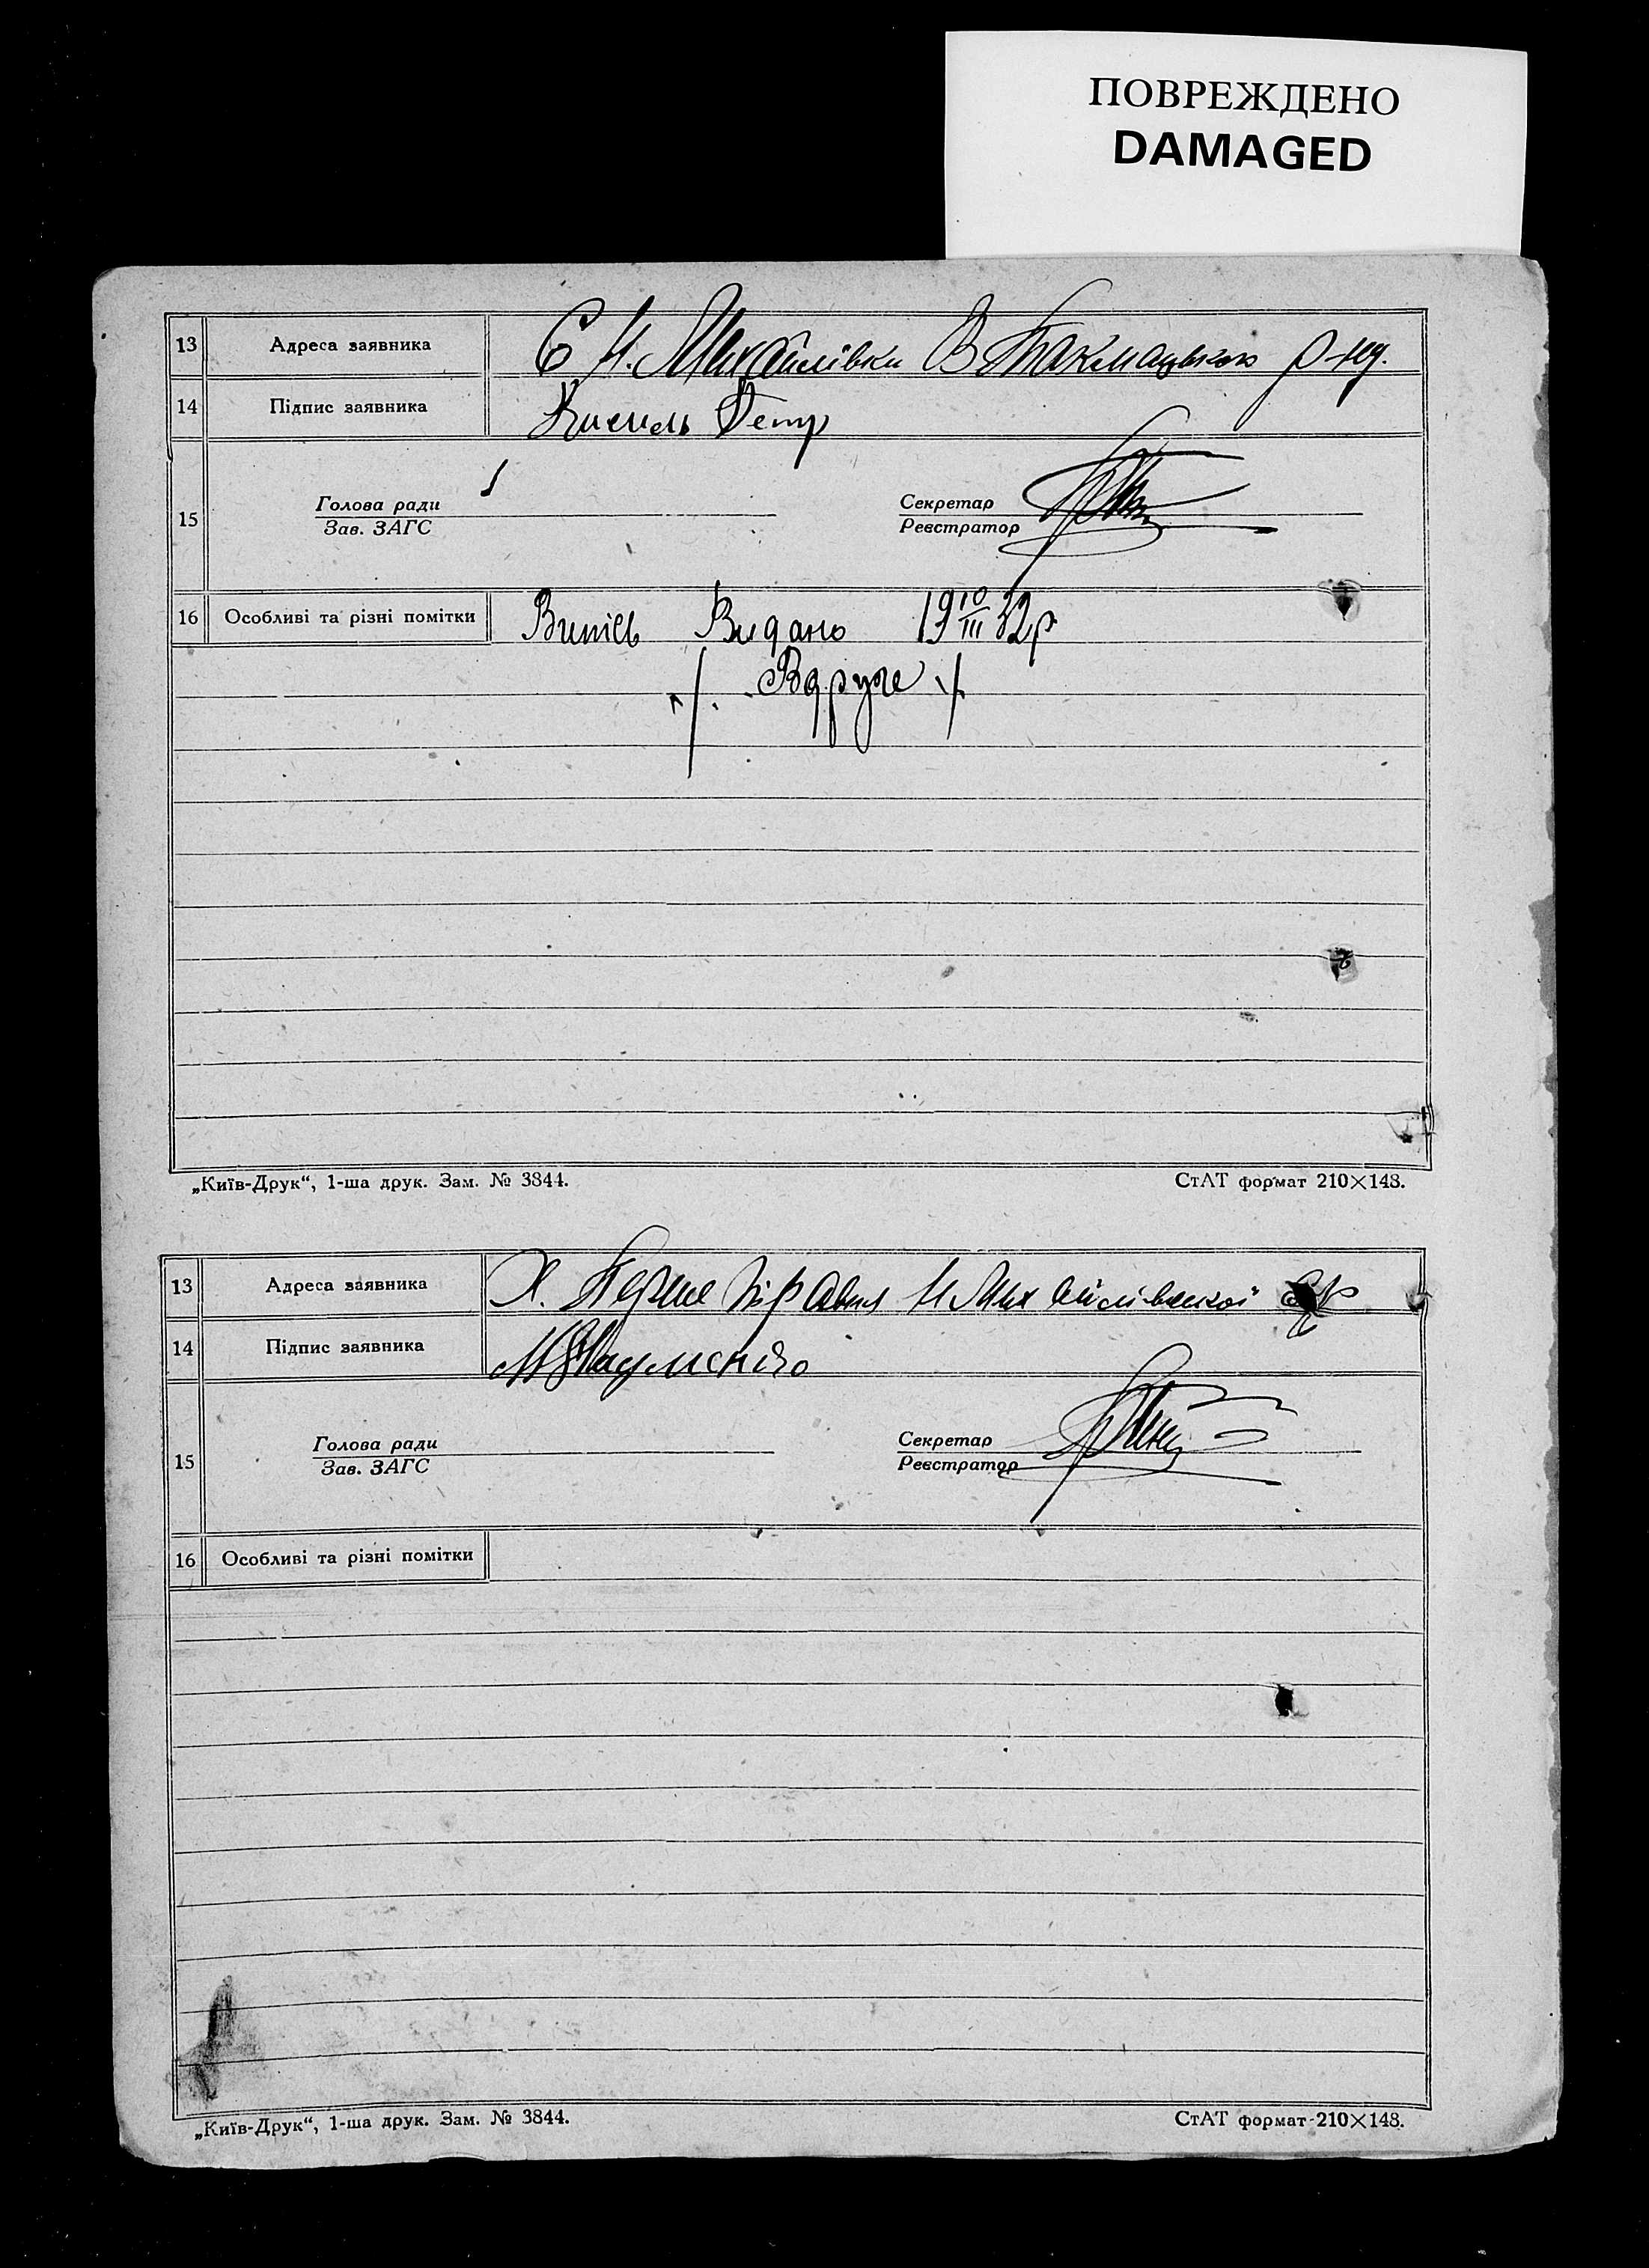 ПОВРЕЖДЕНО
DAMAGED
13 Адреса заявника С Н. Михайлівки В Токмацького р-ну.
14 Підпис заявника Кисиль Петр
15 Голова ради Секретар
Зав. ЗАГС Реєстратор
16 Особливі та різні помітки Витіг Видано 19 10/III 32 р.
Вдруге
„Київ-Друк“, 1-ша друк. Зам. № 3844.
СтАТ формат 210×148.
13 Адреса заявника Х. Перше Н Михайлівської
14 Підпис заявника Науменко
15 Голова ради Секретар
Зав. ЗАГС Реєстратор
16 Особливі та різні помітки
„Київ-Друк“, 1-ша друк. Зам. № 3844.
СтАТ формат 210×148.